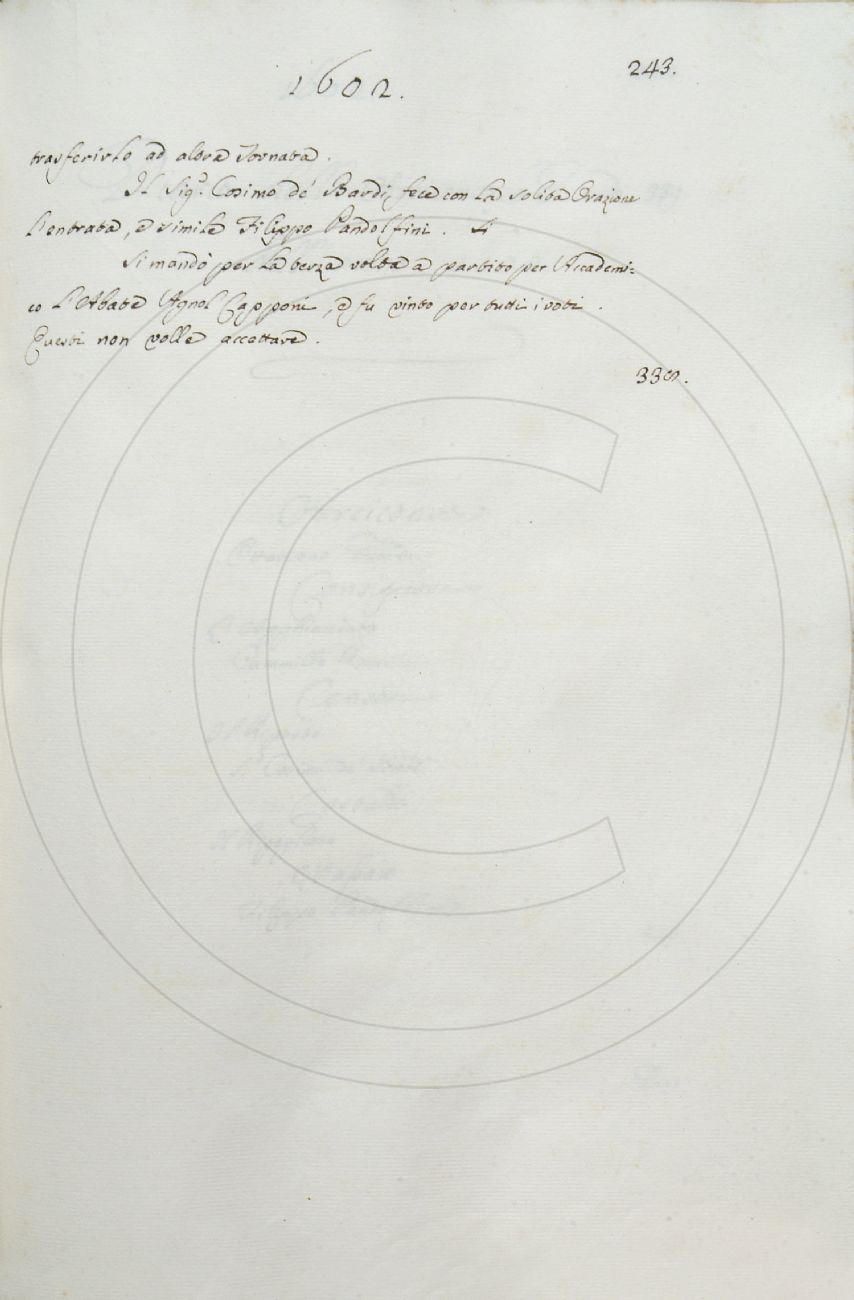 1602.
243.
trasferirlo ad altra Tornata.
Il Sig.r Cosimo de' Bardi, fece con la solita Orazione
l'entrata, e simile Filippo Pandolfini.
Si mandò per la terza volta a partito per Accademi=
co l'Abate Agnol Capponi, e fu vinto per tutti i voti.
Questi non volle accettare.